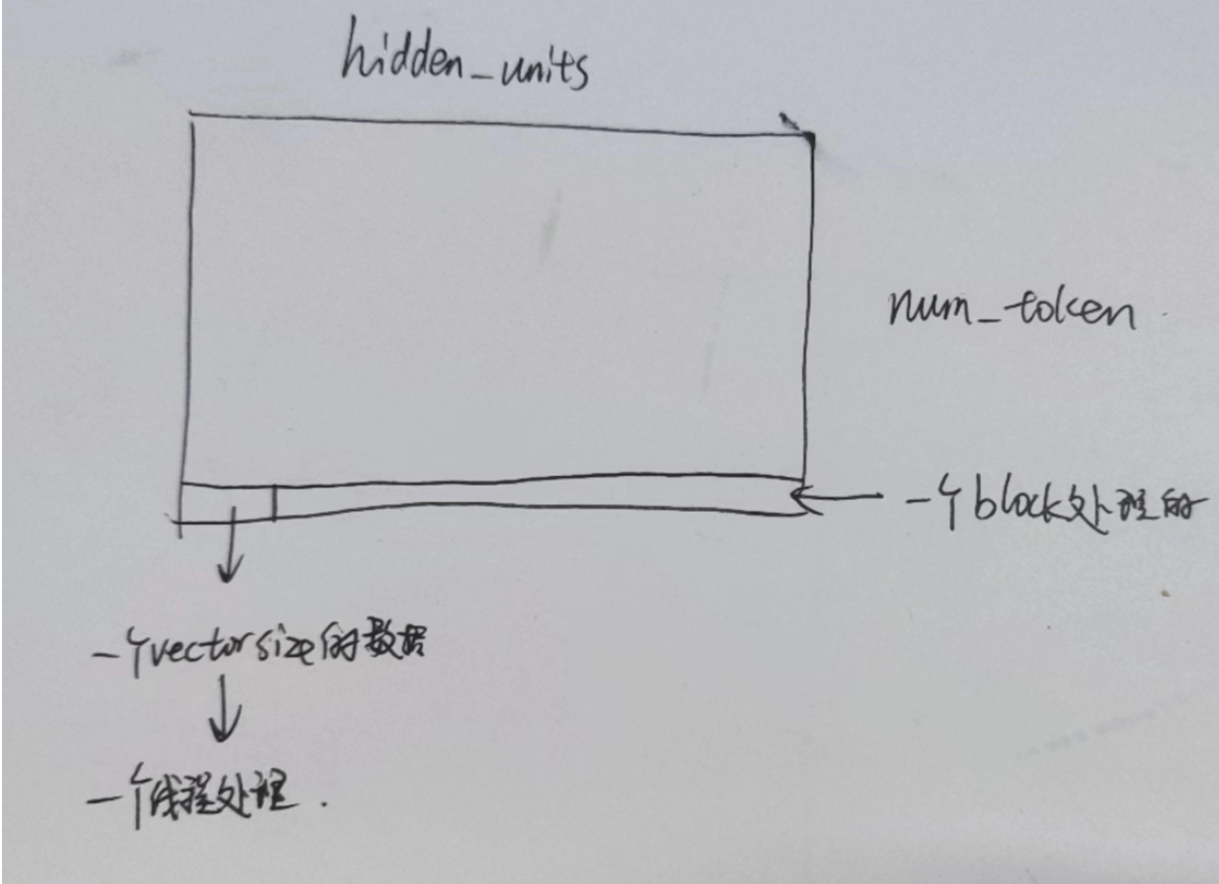 hidden_units
num_token
一个block处理的
一个vectorsize的数据
一个线程处理.